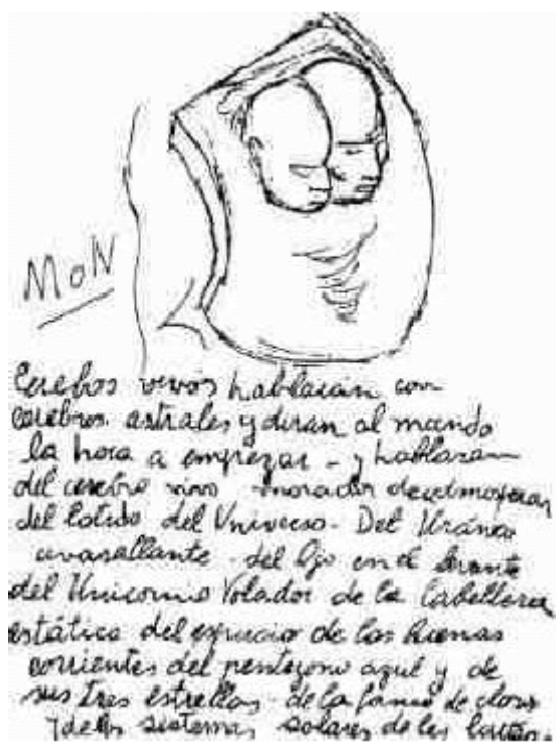 MoN
Cerebros vivos hablarán con
cerebros astrales y diran al mundo
la hora a empezar - y hablaran
del cerebro vivo morador de
del        del Universo - Del
avasallante - del Ojo en el
del Unicornio Volador de la Cabellera
estática del espacio de las buenas
corrientes del pentágono azul y de
sus tres estrellas - de la forma de
y de los sistemas solares de las